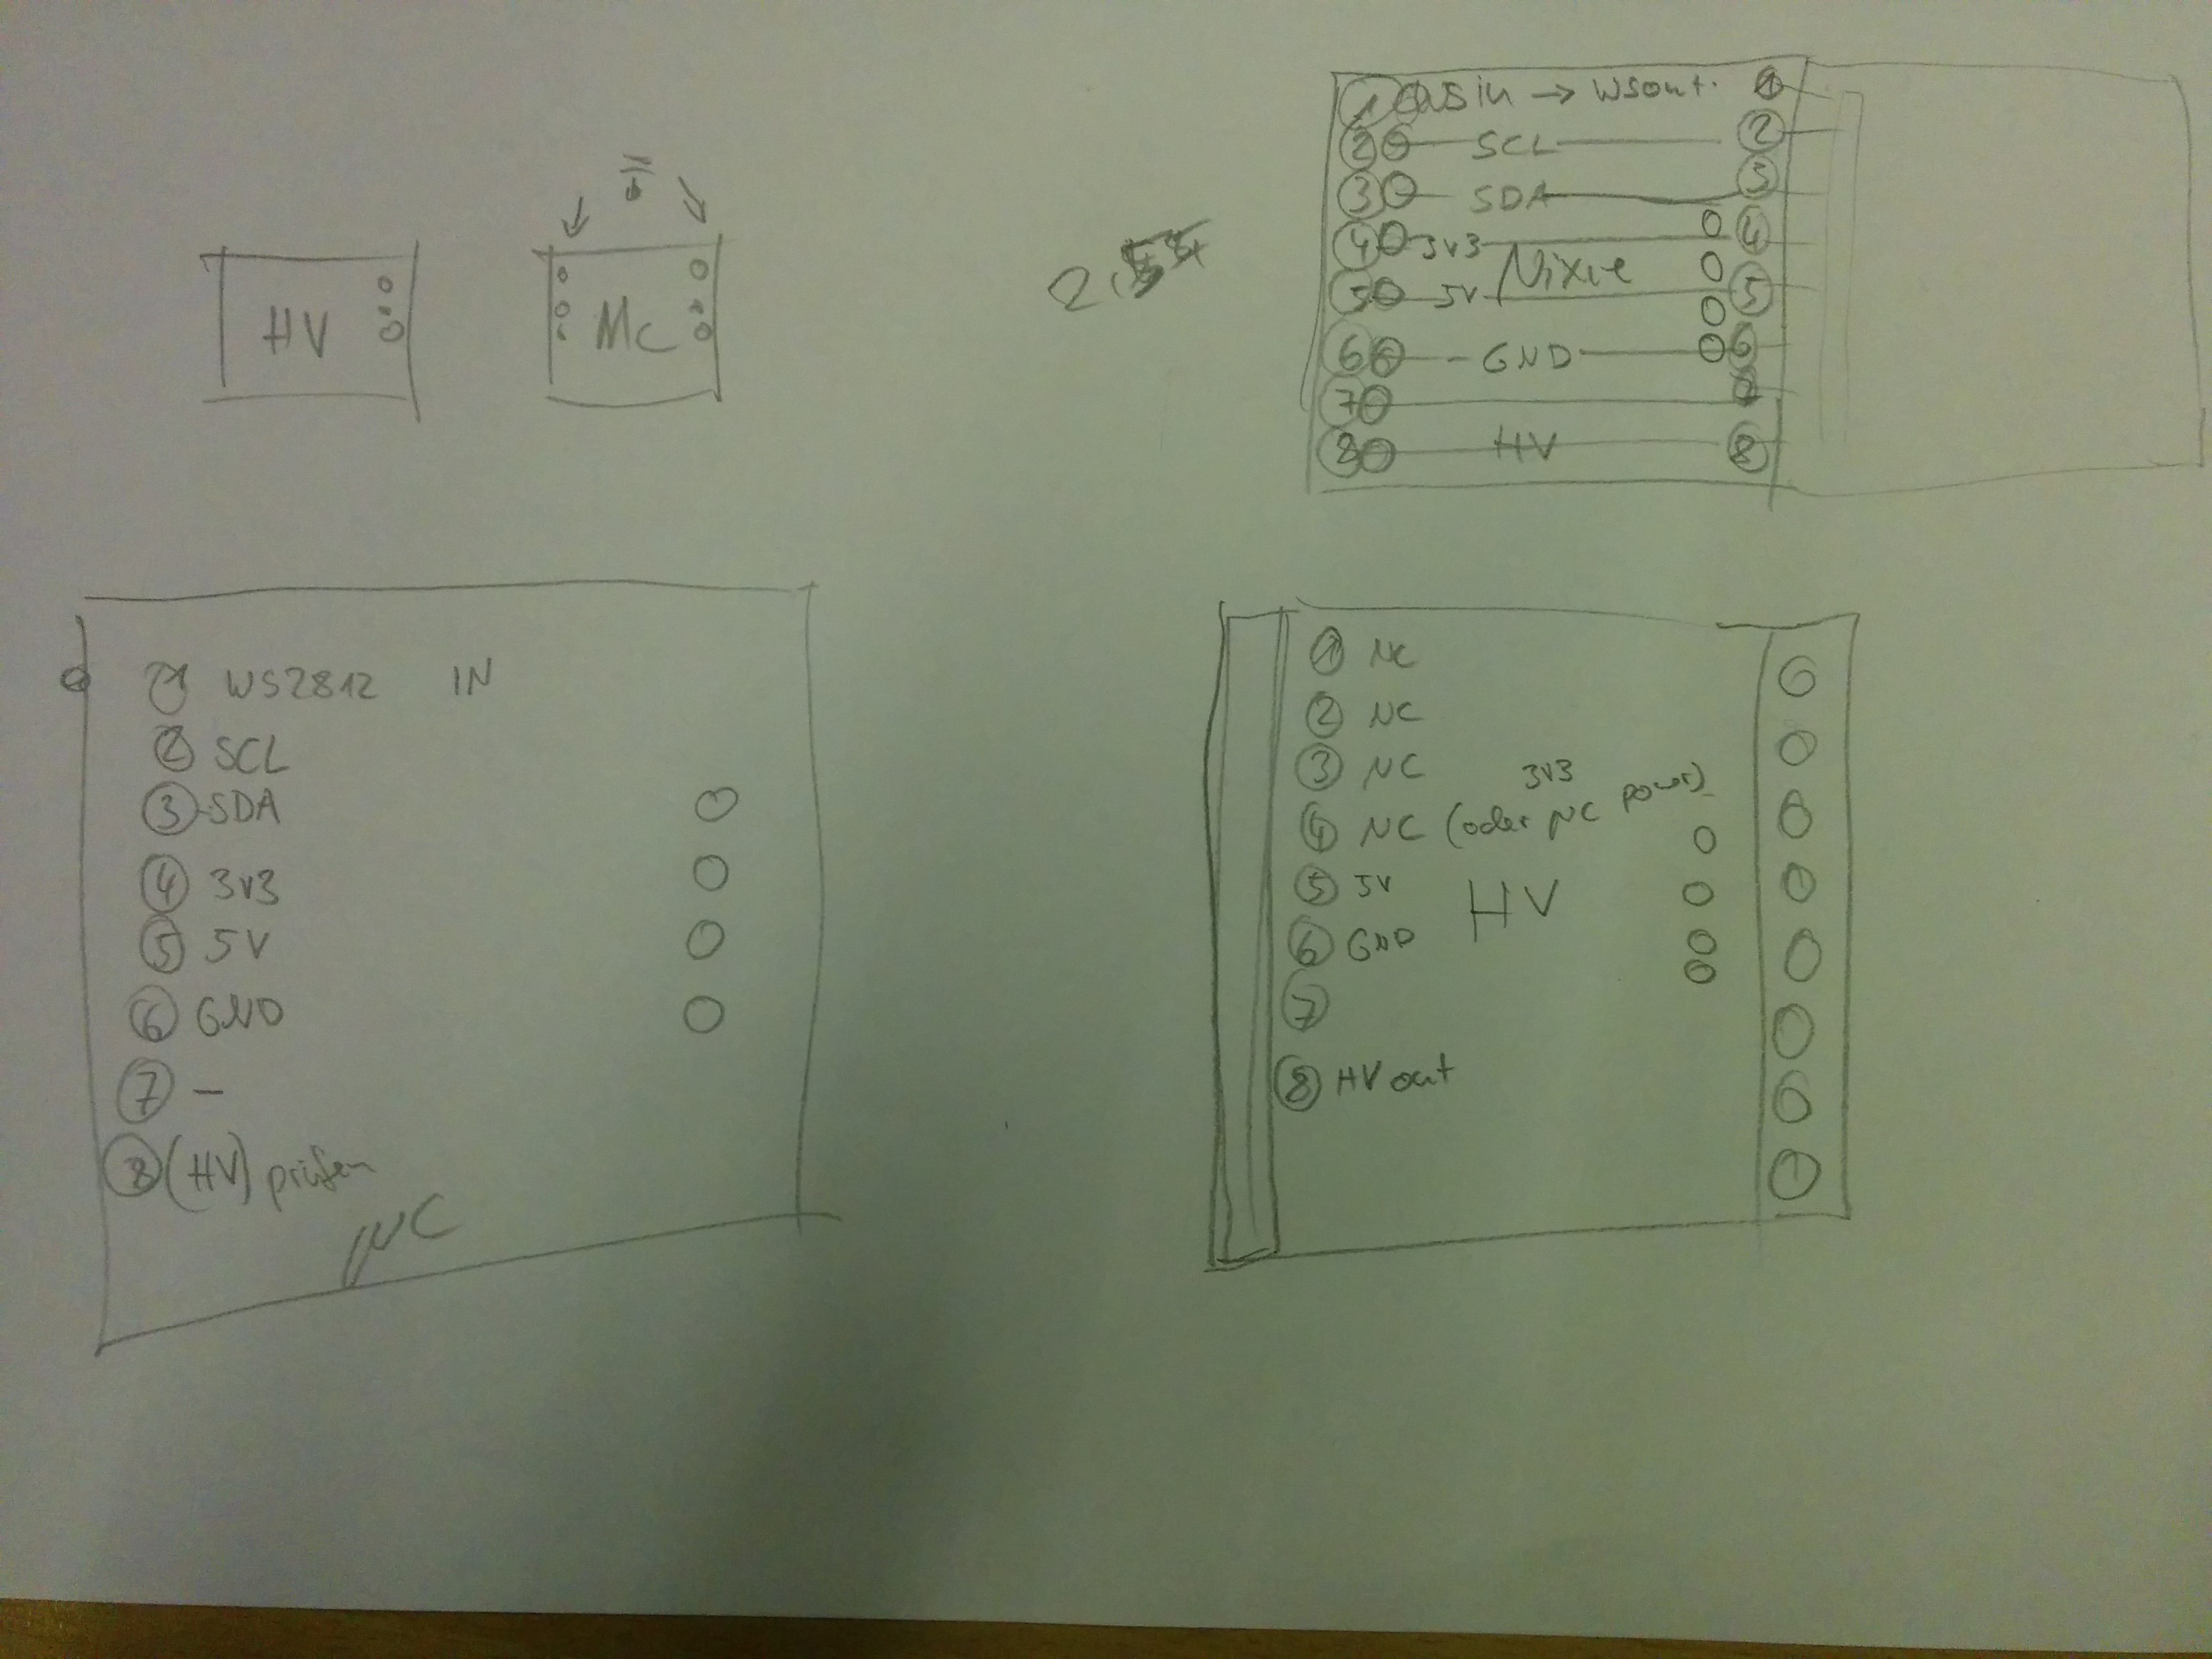 HV
MC
2.54
1 WS in → WSout.
1
2 SCL
2
3 SDA
3
4 3v3
4
Nixie
5 5V
5
6 GND
6
7
7
8 HV
8
1 WS2812 IN
2 SCL
3 SDA
4 3v3
5 5V
6 GND
7 –
8 (HV) prüfen
µC
1 NC
2 NC
3 NC
3v3
4 NC (oder µC power)
5 5V
HV
6 GND
7
8 HV out